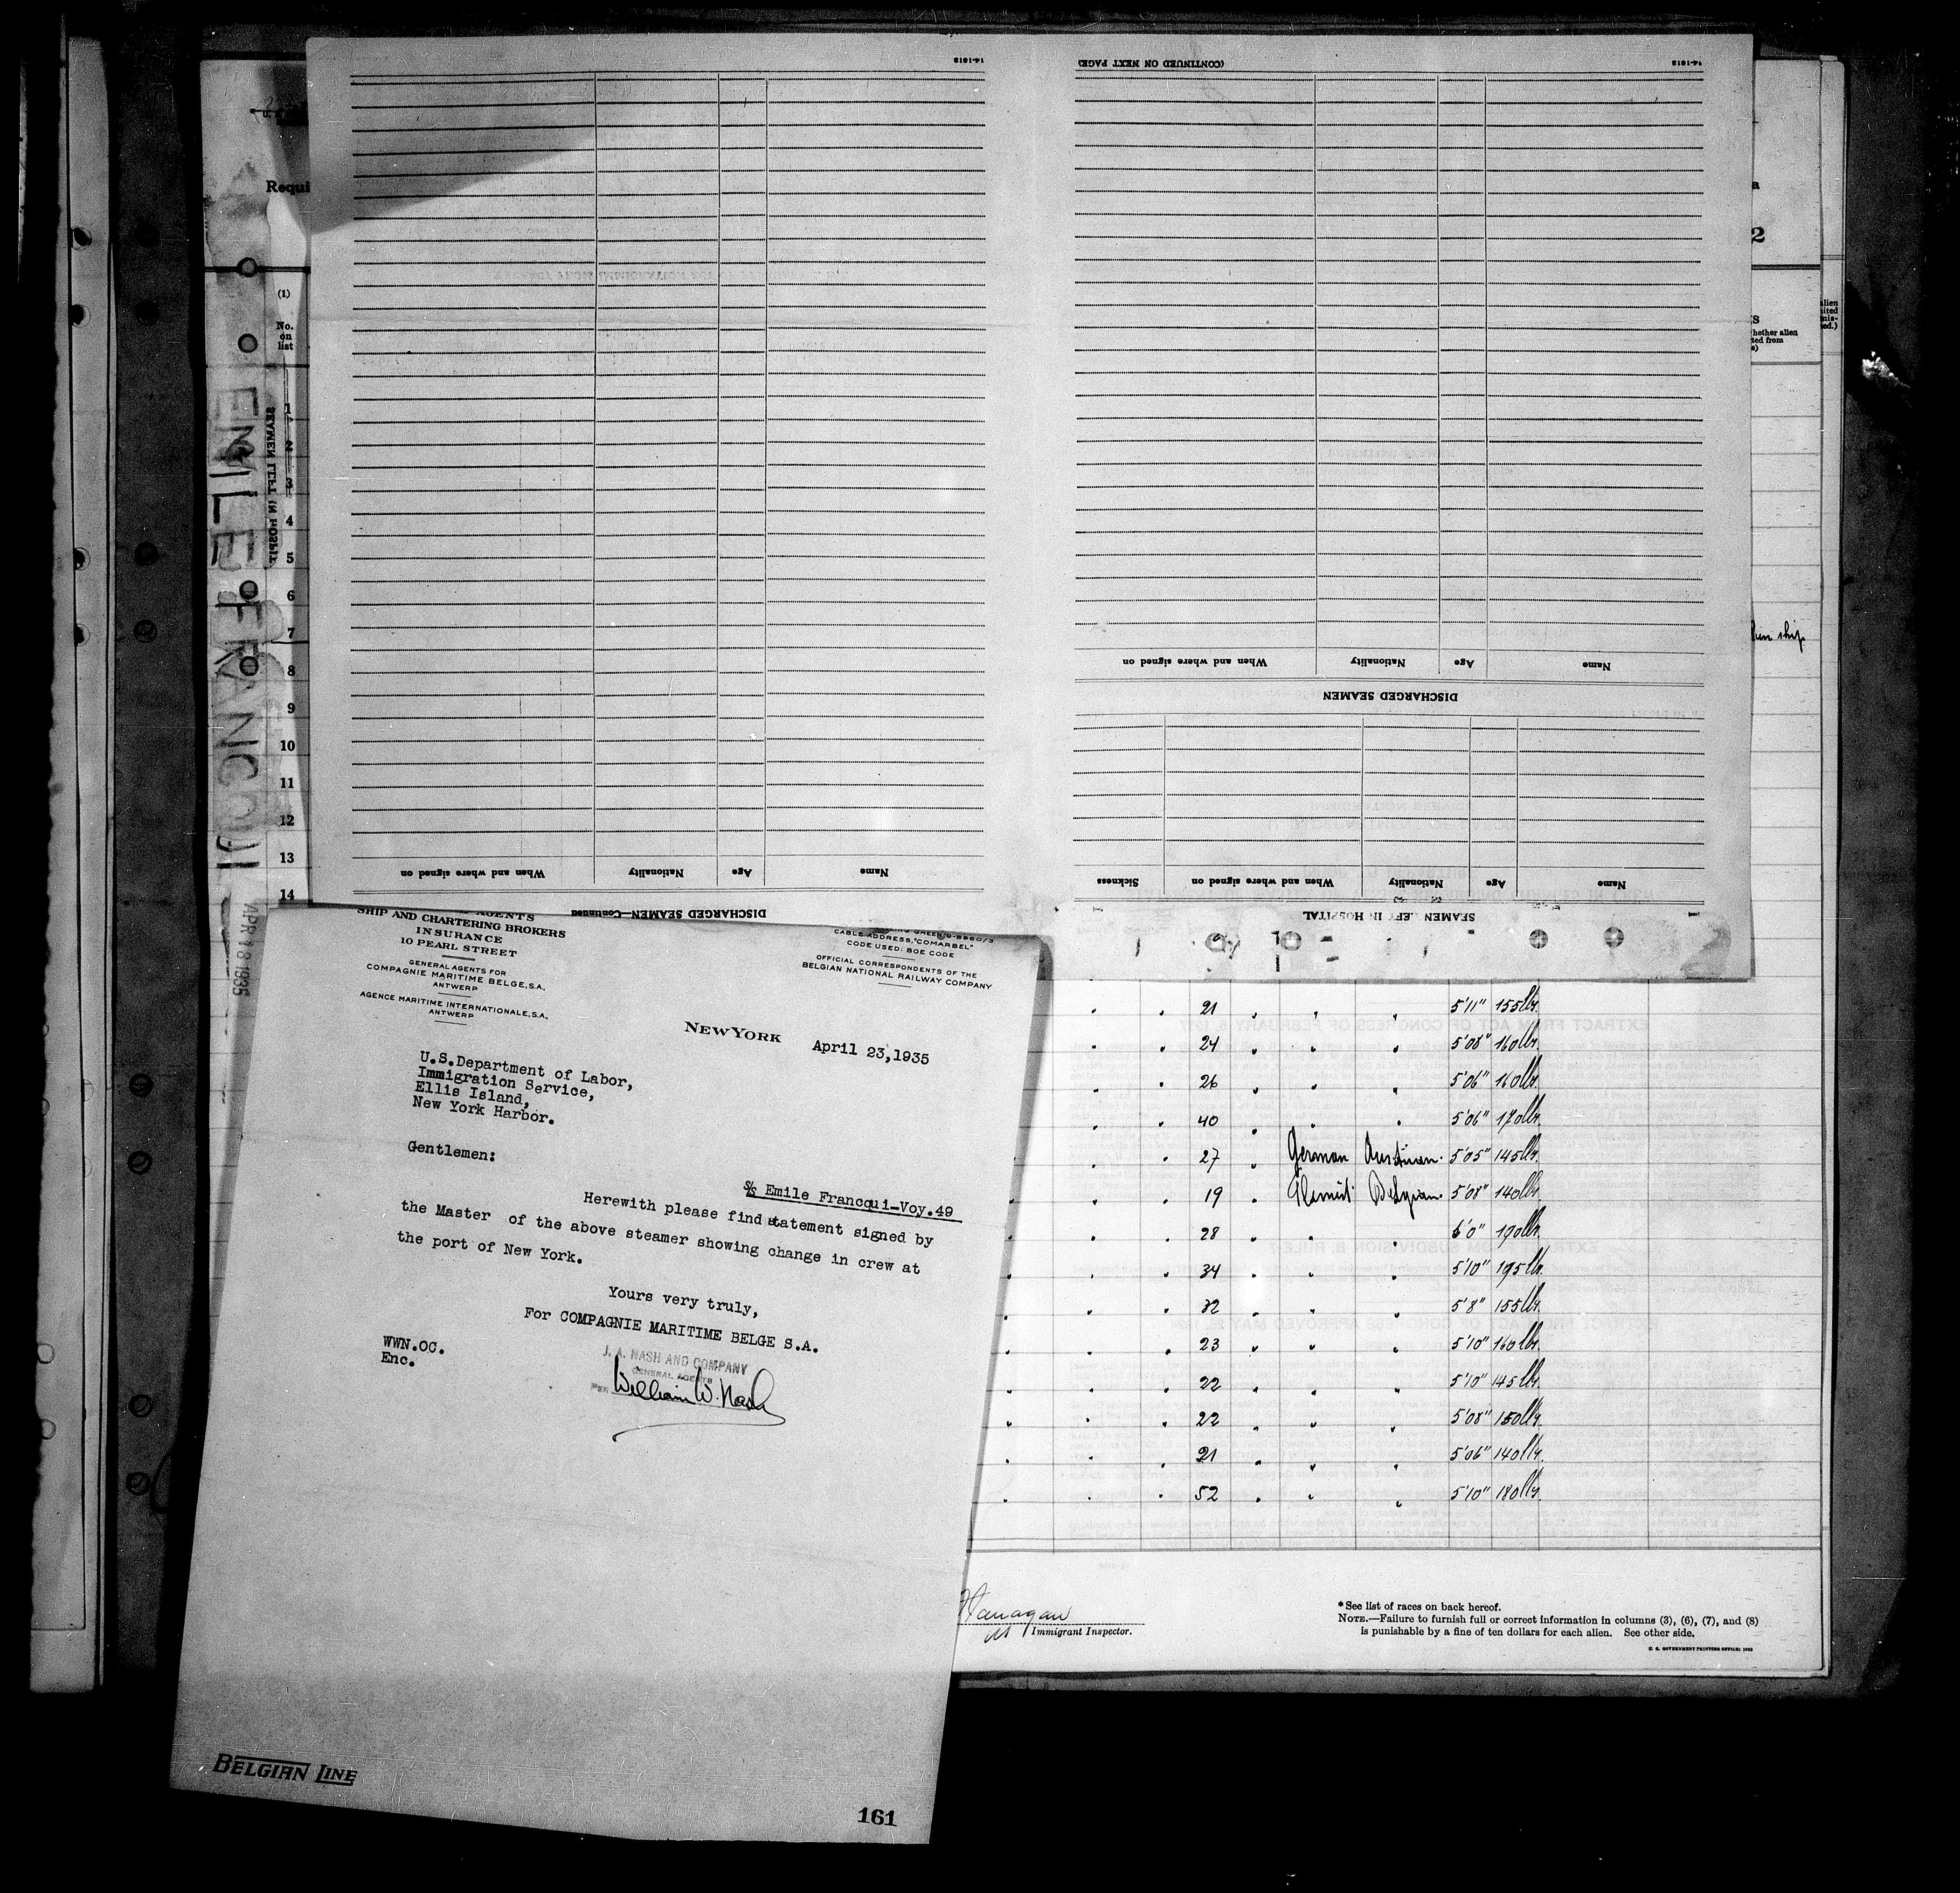 14-1613
(CONTINUED ON NEXT PAGE)
14-1613
When and where signed on Nationality Age Name
DISCHARGED SEAMEN
When and where signed on Nationality Age Name
DISCHARGED SEAMEN—Continued
Sickness When and where signed on Nationality Age Name
SEAMEN LEFT IN HOSPITAL
Requi
(1)
No.
on
list
1
2
3
4
5
6
7
8
9
10
11
12
13
14
SEAMEN LEFT IN HOSPIT
EMILE FRANCQUI
APR 18 1935
2
hether alien
ted from
alien
ship
AGENTS
SHIP AND CHARTERING BROKERS
INSURANCE
10 PEARL STREET
GENERAL AGENTS FOR
COMPAGNIE MARITIME BELGE, S.A.,
ANTWERP
AGENCE MARITIME INTERNATIONALE, S.A.,
ANTWERP
CABLE ADDRESS, "COMARBEL"
CODE USED: BOE CODE
OFFICIAL CORRESPONDENTS OF THE
BELGIAN NATIONAL RAILWAY COMPANY
NEW YORK April 23,1935
U.S.Department of Labor,
Immigration Service,
Ellis Island,
New York Harbor.
Gentlemen:
S/S Emile Francqui-Voy.49
Herewith please find statement signed by
the Master of the above steamer showing change in crew at
the port of New York.
Yours very truly,
For COMPAGNIE MARITIME BELGE S.A.
WWN.OC.
Enc.
J. A. NASH AND COMPANY
GENERAL AGENTS
PER William W. Nash
BELGIAN LINE
161
21 5'11" 155lbs.
24 5'08" 160lbs.
26 5'06" 160lbs.
40 5'06" 170lbs.
27 German Austrian 5'05" 145lbs.
19 Flemish Belgian 5'08" 140lbs.
28 6'0" 190lbs.
34 5'10" 195lbs.
32 5'8" 155lbs.
23 5'10" 160lbs.
22 5'10" 145lbs.
22 5'08" 150lbs.
21 5'06" 140lbs.
52 5'10" 180lbs.
Flanagan
Immigrant Inspector.
* See list of races on back hereof.
NOTE.—Failure to furnish full or correct information in columns (3), (6), (7), and (8)
is punishable by a fine of ten dollars for each alien. See other side.
U. S. GOVERNMENT PRINTING OFFICE: 1932